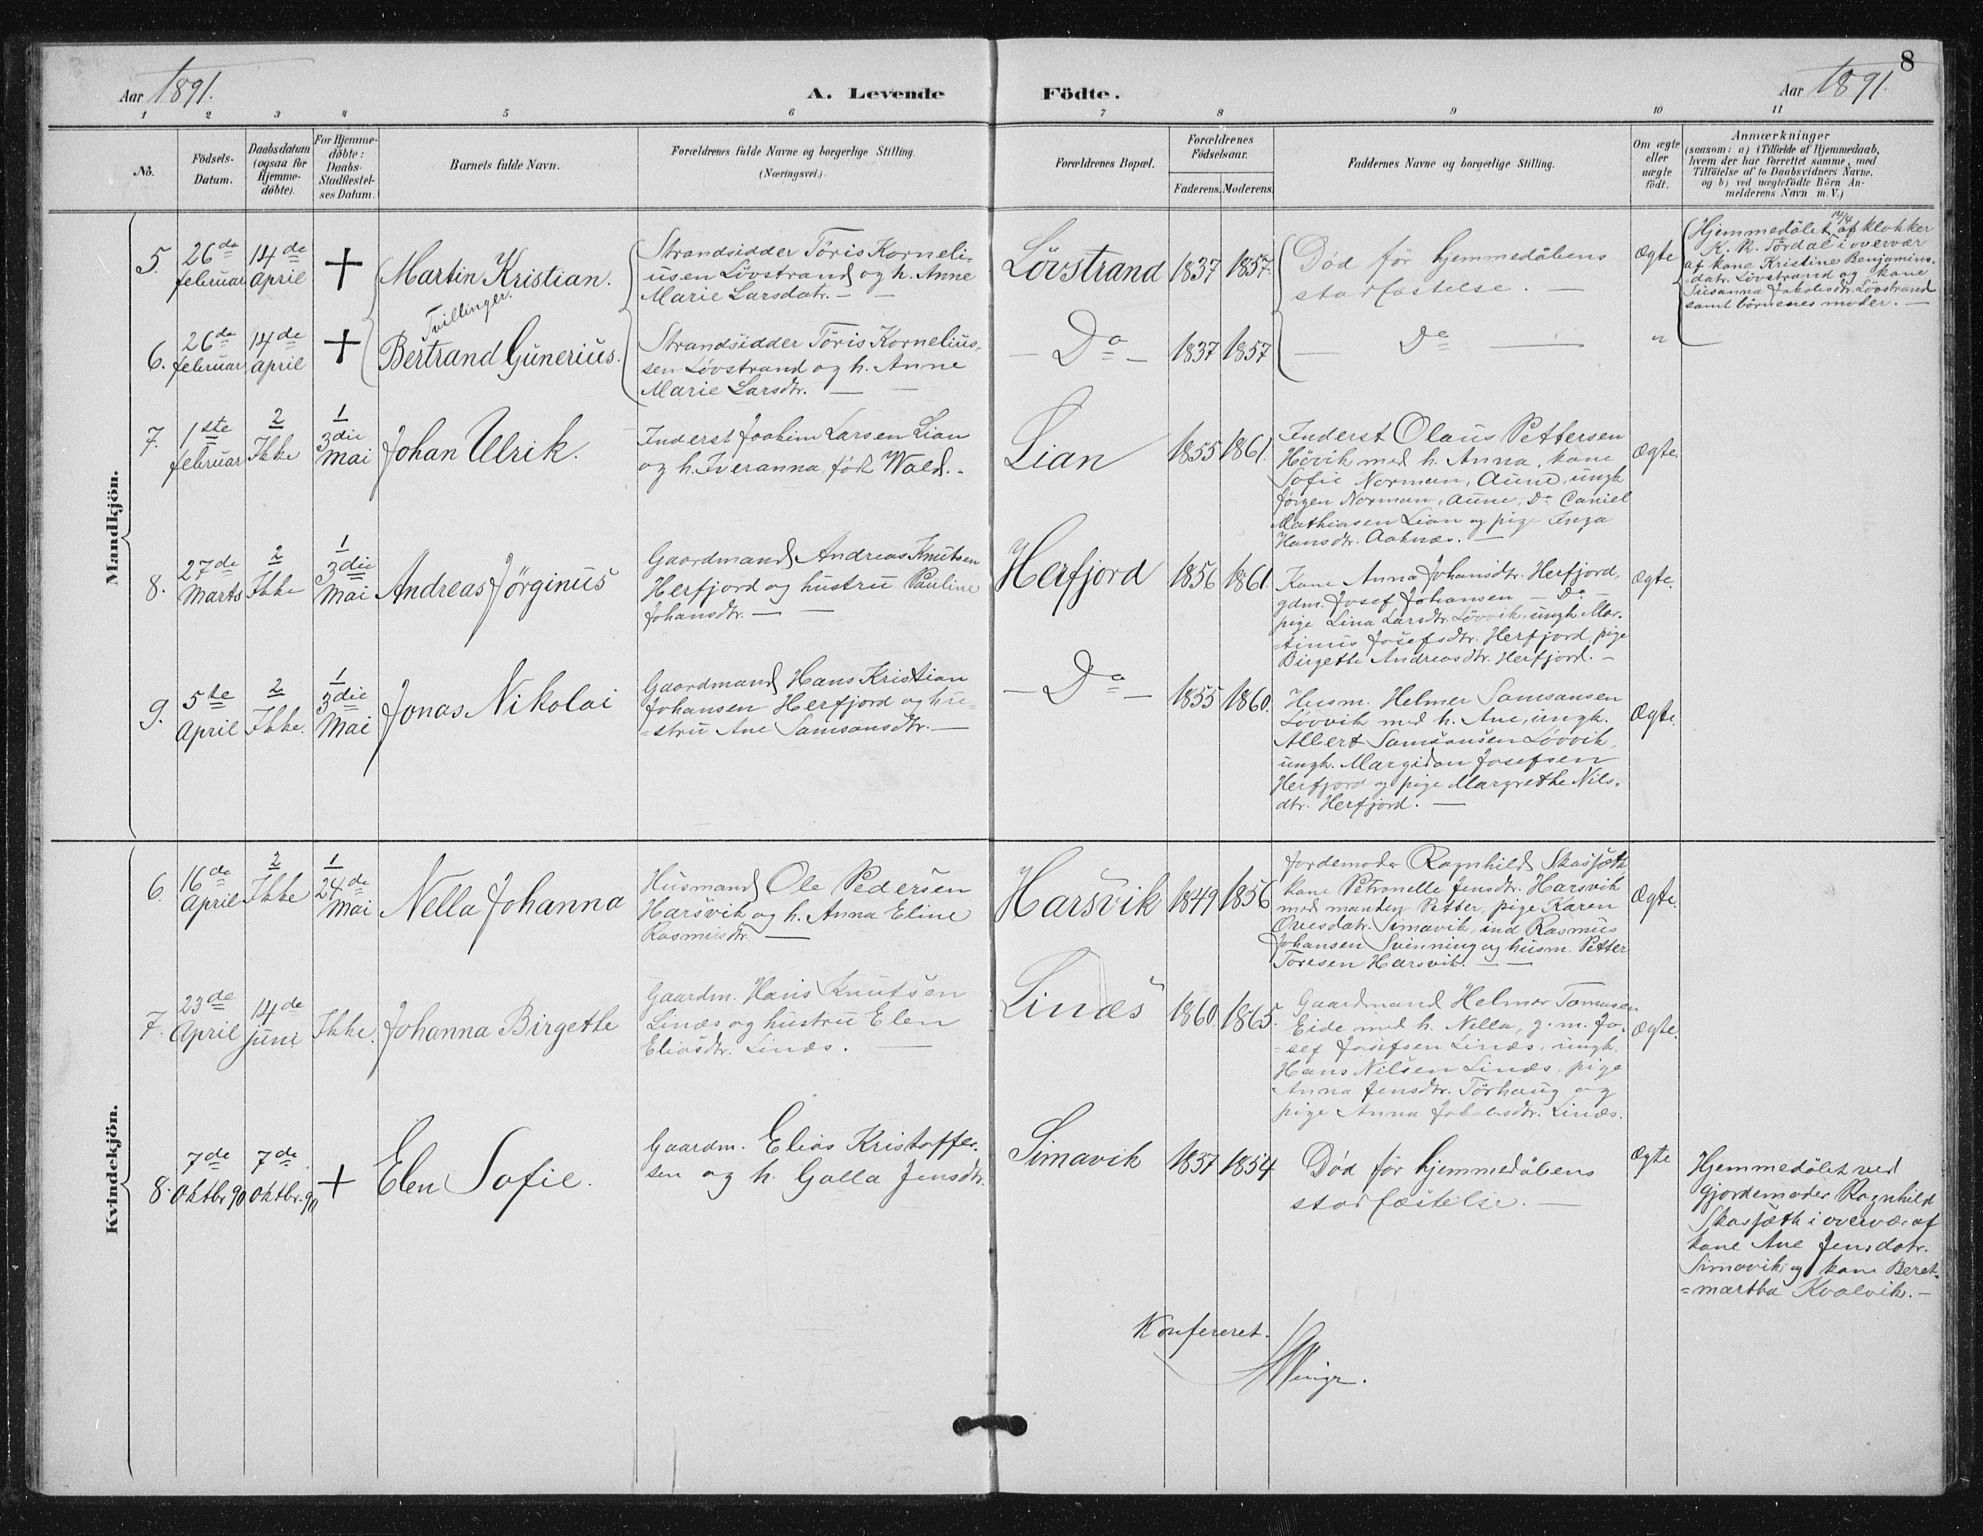 8
Aar 1891.
A. Levende Födte.
Aar 1891.
1 2 3 4 5 6 7 8 9 10 11
No.
Födsels-
Datum.
Daabsdatum
(ogsaa for
Hjemme-
döbte).
For Hjemme-
döbte:
Daabs-
Stadfæstel-
ses Datum.
Barnets fulde Navn.
Forældrenes fulde Navne og borgerlige Stilling.
(Næringsvei.)
Forældrenes Bopæl.
Forældrenes
Födselsaar.
Faderens. Moderens.
Faddernes Navne og borgerlige Stilling.
Om ægte
eller
uægte
født.
Anmærkninger
(saasom: a) i Tilfælde af Hjemmedaab,
hvem der har forrettet samme, med
Tilföielse af to Daabsvidners Navne,
og b) ved uægtefödte Börn An-
melderens Navn m. V.)
Mandkjön.
5.
26de
februar
14de
April
+
Martin Kristian.
Tvillinger.
Strandsidder Töris Korneli-
usen Lövstrand og h. Anne
Marie Larsdatr. —
Lövstrand
1837
1857.
Död för hjemmedåbens
stadfæstelse. —
Ægte
Hjemmedöbt 14/4 af klokker
K. K. Tördal i overvær
af kone Kristine Benjamins-
datr. Lövstrand og kone
Susanna Jakobsdtr. Lövstrand
samt börnenes moder. —
6.
26de
februar
14de
April
+
Bertrand Gunerius.
Strandsidder Töris Kornelius-
sen Lövstrand og h. Anne
Marie Larsdtr. —
— Do —
1837
1857
— Do —
"
7.
1ste
februar
2
Ikke
1
3die
Mai
Johan Ulrik.
Inderst Joakim Larsen Lian
og h. Iveranna föd Wold. -
Lian
1855
1861.
Inderst Olaus Pettersen
Hövik med h. Anna, kone
Sofie Norman, Aune, ungk.
Jörgen Norman, Aune, Do Daniel
Mathiasen Lian og pige Inga
Hansdtr. Aaknæs. —
Ægte.
8.
27de
Marts
2
Ikke
1
3die
Mai
Andreas Jörginus
Gaardmand Andreas Knutsen
Herfjord og hustru Pauline
Johansdtr. —
Herfjord
1856
1861.
Kone Anna Johansdtr. Herfjord,
gdm. Josef Johansen — Do —
pige Lina Larsdtr. Lövvik, ungk. Mar-
tinus Josefsdtr. Herfjord, pige
Birgette Andreasdtr. Herfjord. —
Ægte.
9.
5te
April
2
Ikke.
1
3die
Mai
Jonas Nikolai
Gaardmand Hans Kristian
Johansen Herfjord og hu-
=stru Ane Samsonsdtr. —
— Do —
1855
1860.
Husm. Helmer Samsonsen
Lövvik med h. Ane, ungk.
Albert Samsonsen Lövvik,
ungk. Margidon Josefsen
Herfjord og pige Margrethe Nils-
dtr. Herfjord. —
Ægte.
Kvindekjön.
6.
16de
April
2
Ikke
1
24de
Mai
Nella Johanna
Husmand Ole Pedersen
Harsvik og h. Anna Eline
Rasmusdtr. —
Harsvik
1849
1856
Jordemoder Ragnhild Skasfæth
kone Petronelle Jensdtr. Harsvik
med manden Petter, pige Karen
Ovesdatr. Simavik, ind Rasmus
Johansen Svinning og husm. Petter
Toresen Harsvik. —
Ægte.
7.
23de
April
14de
Juni
Ikke.
Johanna Birgette
Gaardm. Hans Knutsen
Linæs og hustru Elen
Eliasdtr. Linæs. —
Linæs
1860.
1865.
Gaardmand Helmer Tomassen
Eide med h. Nella, g. m. Jo-
=sef Josefsen Linæs, ungk.
Hans Nilsen Linæs, pige
Anna Jensdtr. Törhaug og
pige Anna Jakobsdtr. Linæs.
Ægte.
8.
7de
Oktbr 90
7de
Oktbr. 90
+
Elen Sofie.
Gaardm. Elias Kristoffer-
sen og h. Golla Jensdtr.
Simavik
1857
1854
Död för hjemmedåbens
stadfæstelse. —
Ægte
Hjemmedöbt ved
gjordemoder Ragnhild
Skasfæth i overvær af
kone Ane Jensdatr.
Simavik og kone Beret-
=martha Kvalvik. —
Konfereret.